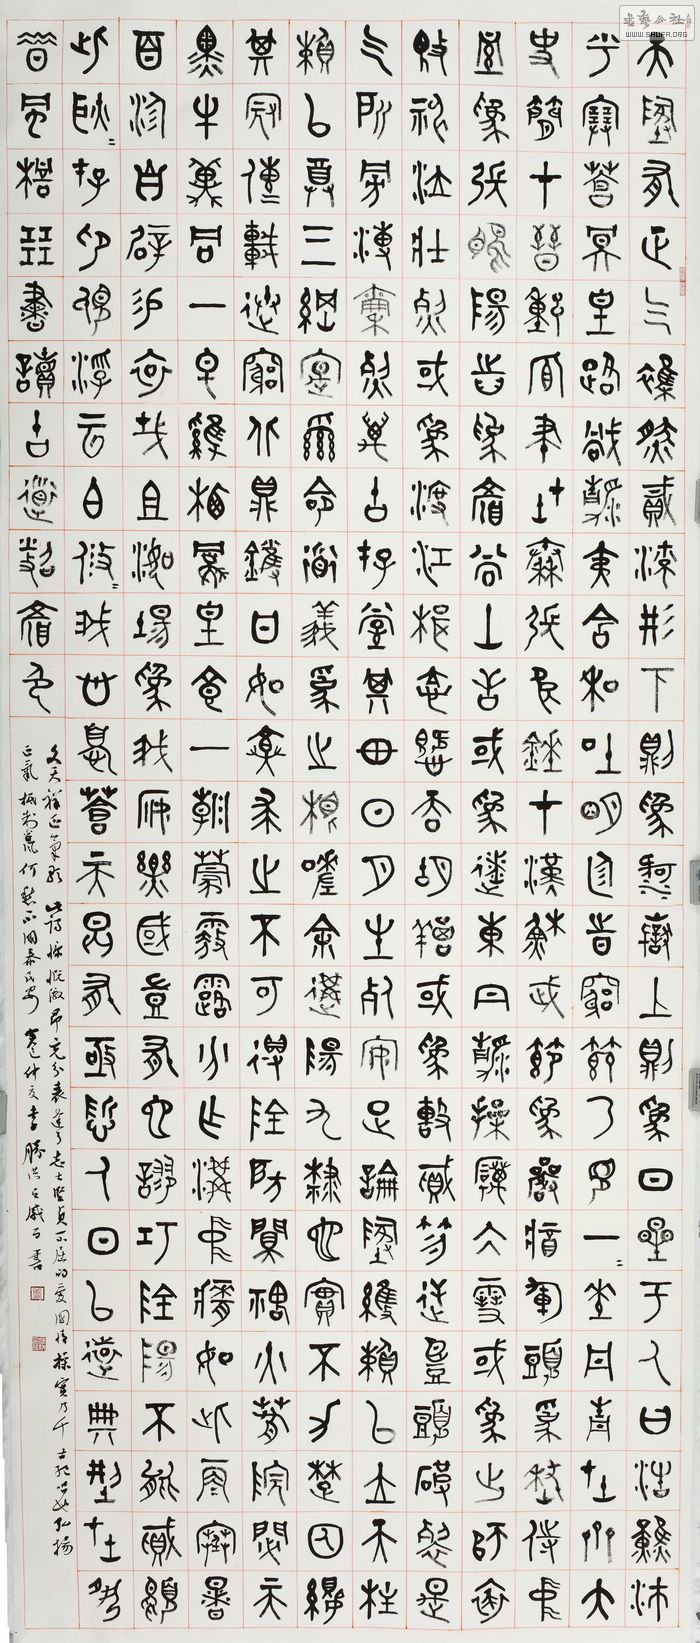 天地有正氣雜然賦流形下則為河嶽上則為日星於人曰浩然沛
乎塞蒼冥皇路當清夷含和吐明庭時窮節乃見一=垂丹青在齊太
史簡在晉董狐筆在秦張良椎在漢蘇武節為嚴將軍頭為嵇侍中
血為張睢陽齒為顏常山舌或為遼東帽清操厲冰雪或為出師表
鬼神泣壯烈或為渡江楫慷慨吞胡羯或為擊賊笏逆豎頭破裂是
氣所磅礴凜烈萬古存當其貫日月生死安足論地維賴以立天柱
賴以尊三綱實繫命道義為之根嗟余遘陽九隸也實不力楚囚纓
其冠傳車送窮北鼎鑊甘如飴求之不可得陰房闃鬼火春院閟天
黑牛驥同一皂雞棲鳳凰食一朝蒙霧露分作溝中瘠如此再寒暑
百沴自辟易哀哉沮洳場為我安樂國豈有他繆巧陰陽不能賊顧
此耿=存仰視浮雲白悠=我心悲蒼天曷有極哲人日以遠典刑在夙
風簷展書讀古道照顏色
文天祥正氣歌 此詩慷慨激昂充分表達了志士堅貞不屈的愛國情操實乃千古絕唱 弘揚
正氣抵制歪風何愁不國泰民安 仲夏書
WWW.SHUFA.ORG